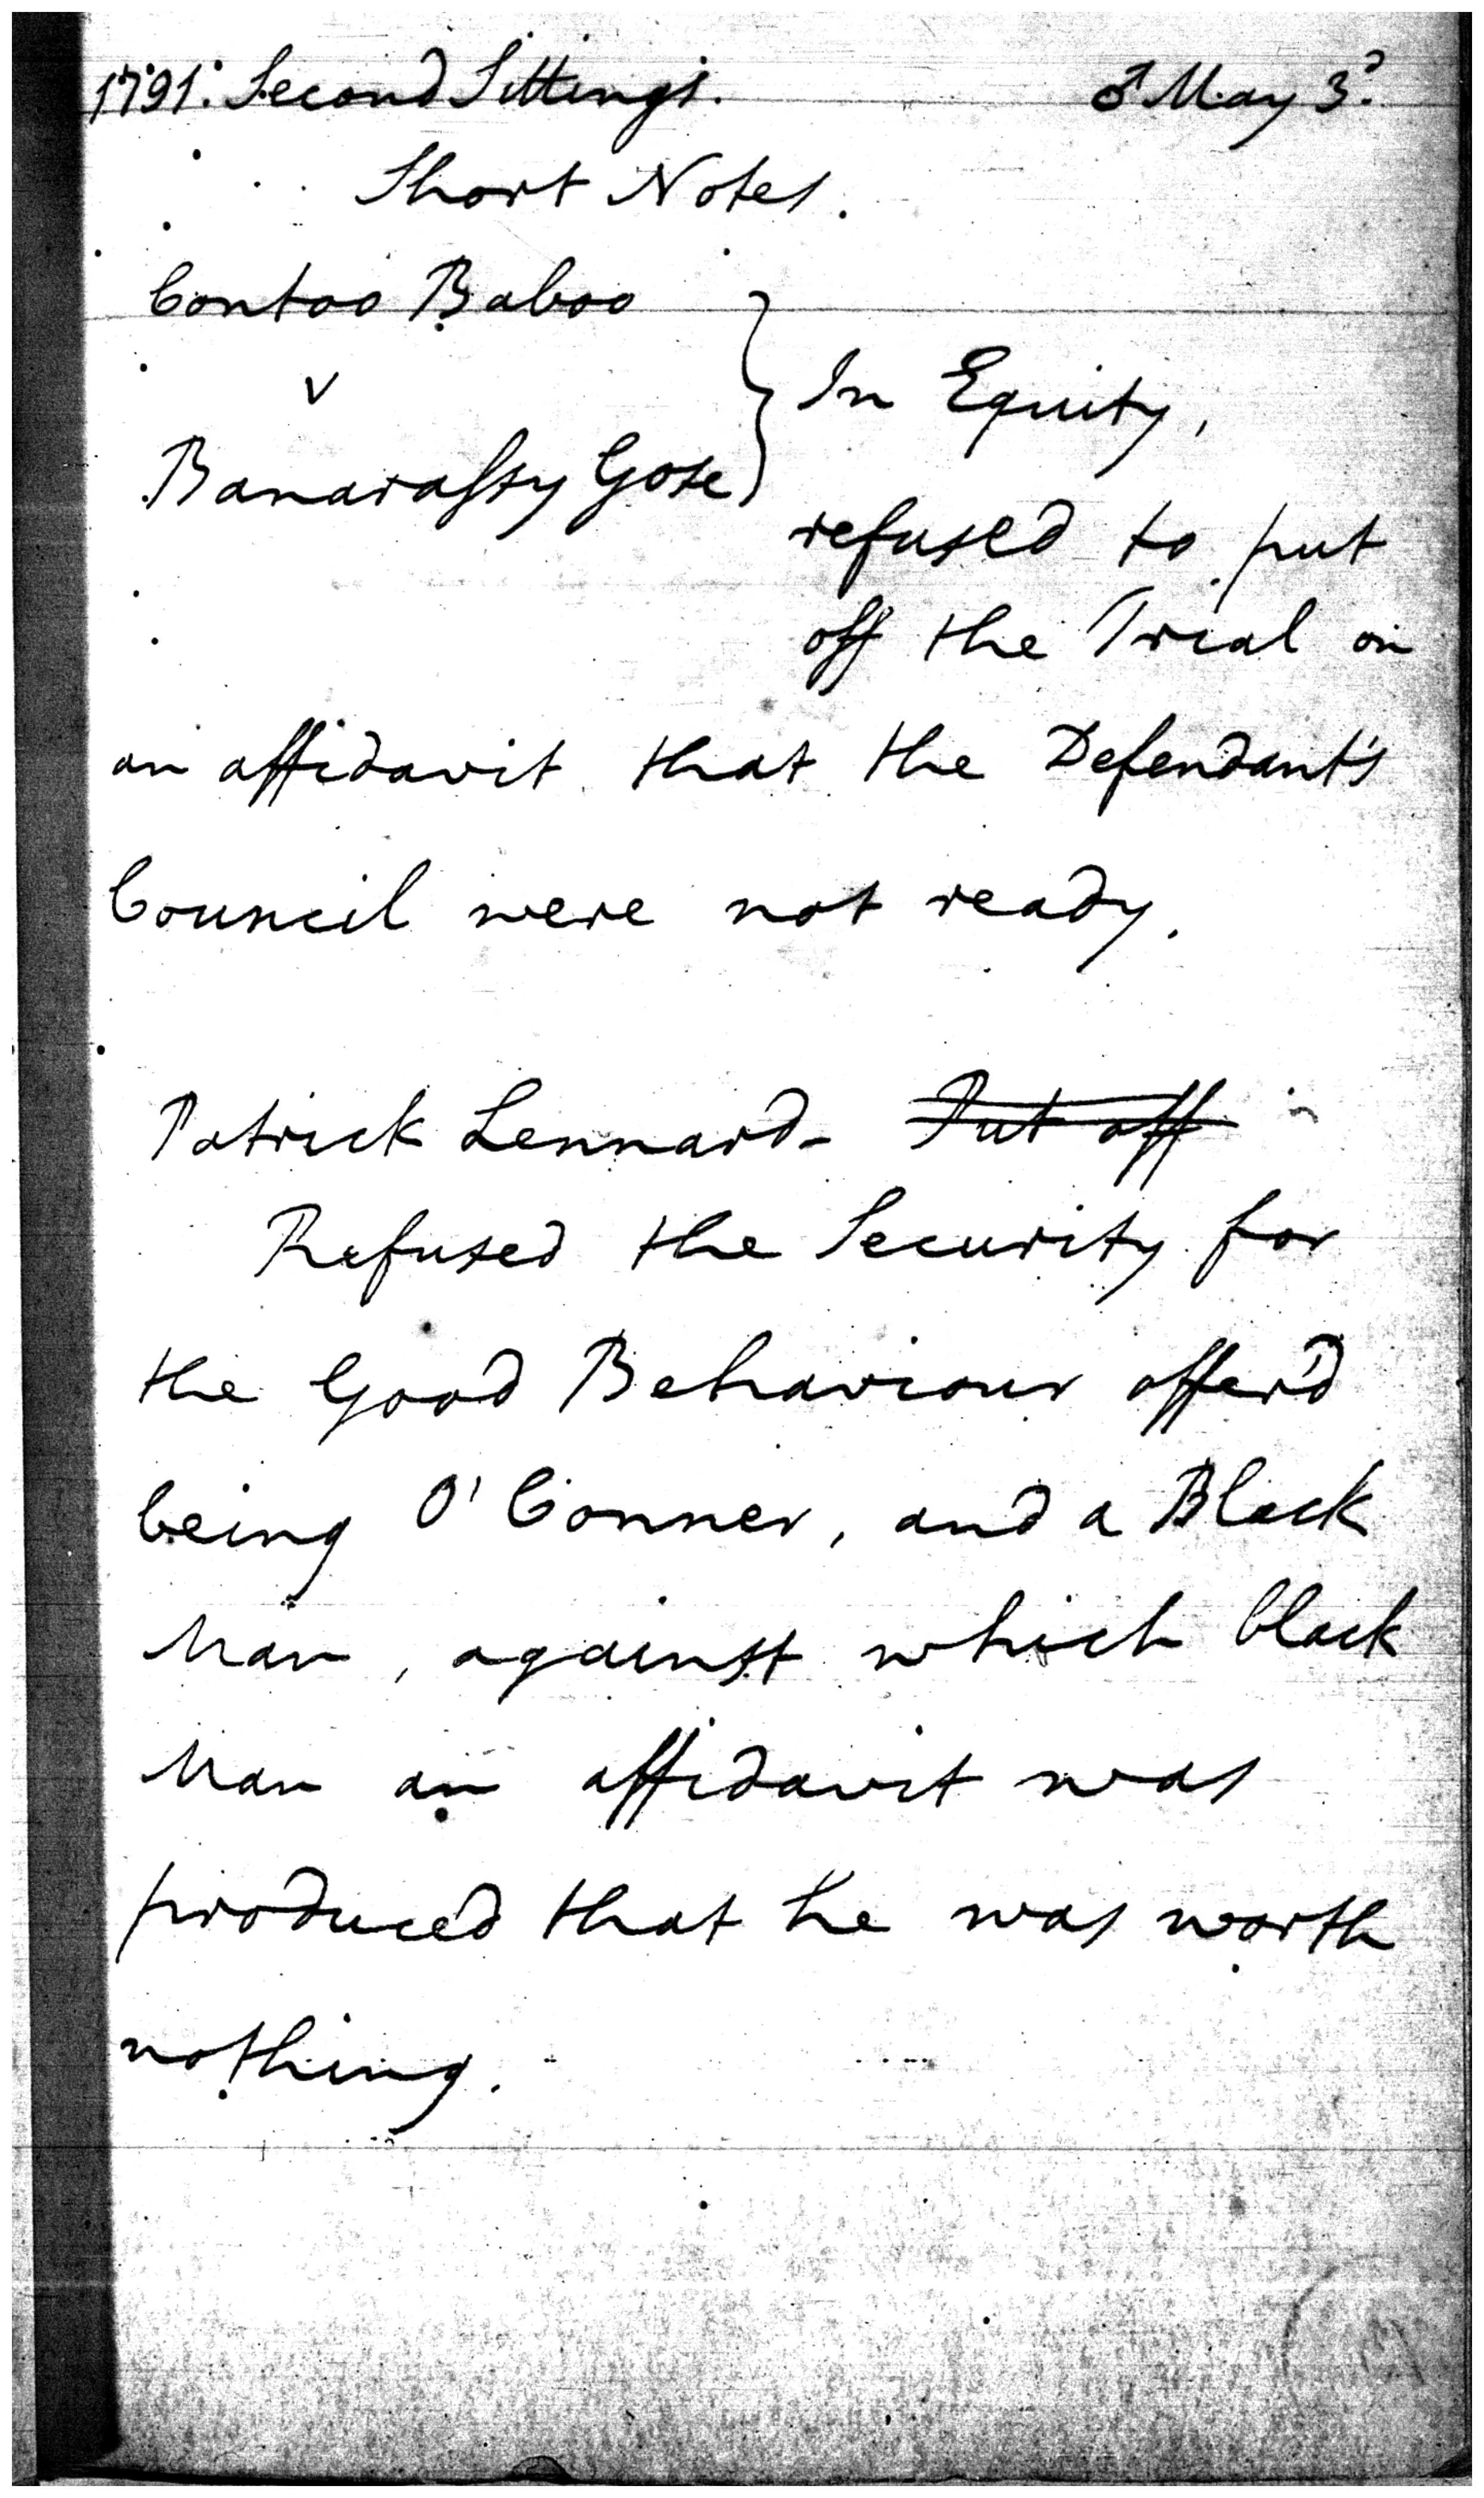 1791. Second Sittings. ♂ May 3d.
Short Notes.
Contoo Baboo
v
Banarassy Gose } In Equity,
refused to put
off the Trial on
an affidavit that the Defendant's
Council were not ready.
Patrick Lennard - Put off
Refused the Security for
the Good Behaviour offer'd
being O'Conner, and a Black
Man, against which black
Man an affidavit was
produced that he was worth
nothing.